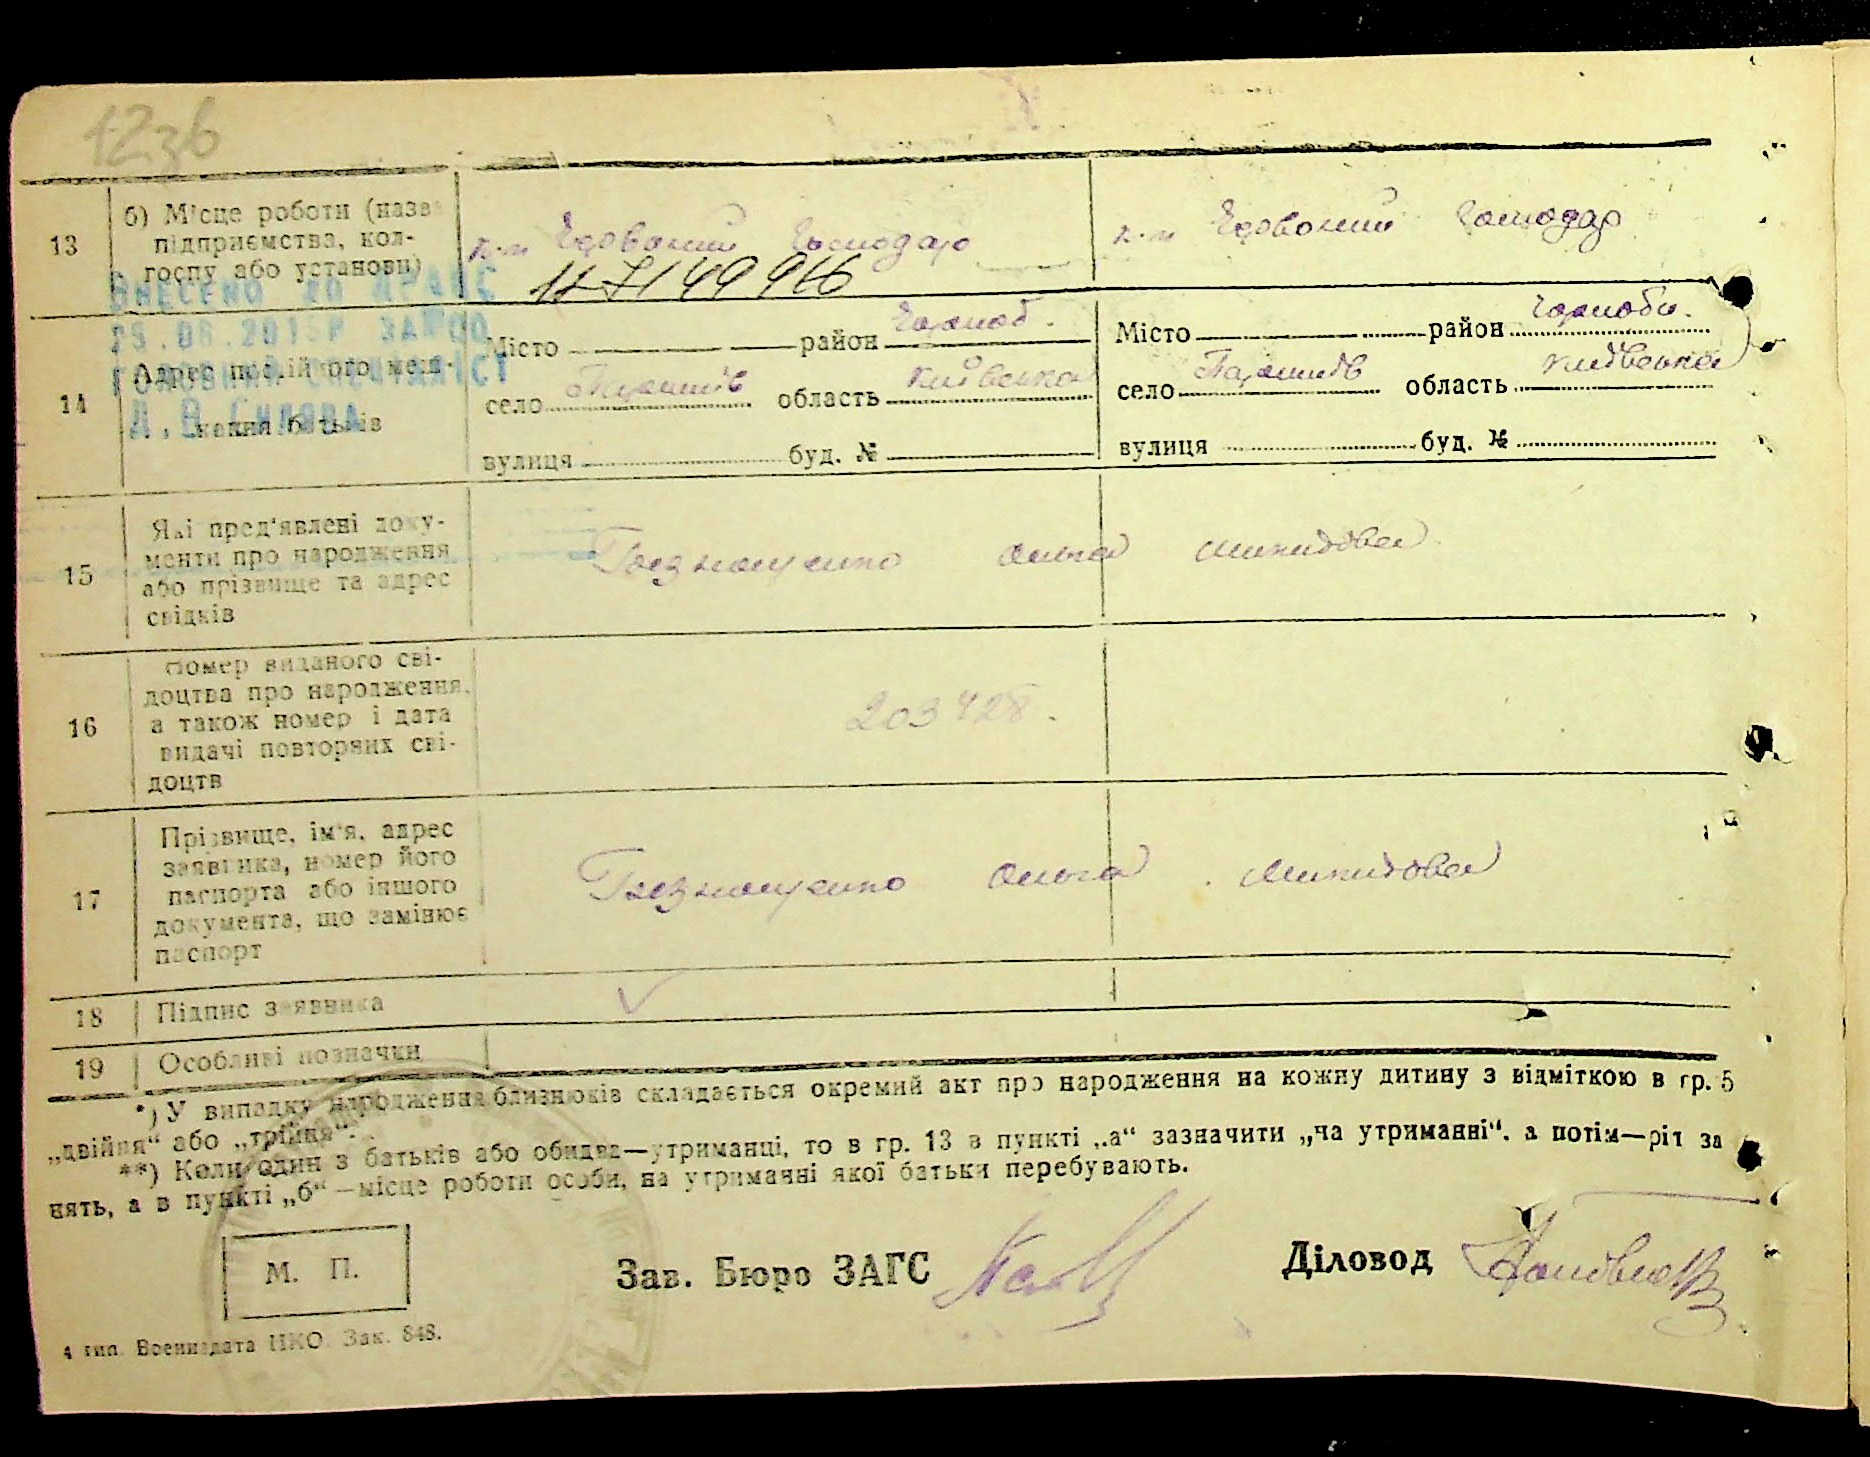 1236
13
б) Місце роботи (назва
підприємства, кол-
госпу або установи)
к-п Червоний Господар
к-п Червоний Господар
ВНЕСЕНО ДО ДРАЦС
14
Адрес постійного меш-
кання батьків
Місто район Чорноб.
село область Київська
вулиця буд. №
Місто район Чорноб.
село область Київська
вулиця буд. №
15
Які пред'явлені доку-
менти про народження
або прізвище та адрес
свідків
Ольга
16
Номер виданого сві-
доцтва про народження,
а також номер і дата
видачі повторних сві-
доцтв
203428.
17
Прізвище, ім'я, адрес
заявника, номер його
паспорта або іншого
документа, що замінює
паспорт
Ольга
18
Підпис заявника
19
Особливі позначки
*) У випадку народження близнюків складається окремий акт про народження на кожну дитину з відміткою в гр. 5
„двійня“ або „трійня“.
**) Коли один з батьків або обидва—утриманці, то в гр. 13 в пункті „а“ зазначити „на утриманні“, а потім—ріг за
нять, а в пункті „б“—місце роботи особи, на утриманні якої батьки перебувають.
М. П.
Зав. Бюро ЗАГС
Діловод
4 тип. Воениздата НКО. Зак. 848.